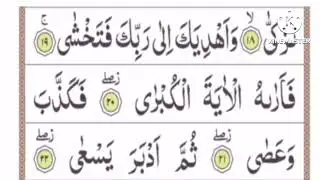 تَزَكّٰى ۙ‏ ﴿۱۸﴾ وَاَهْدِيَكَ اِلٰى رَبِّكَ فَتَخْشٰى ۚ‏ ﴿۱۹﴾
فَاَرٰىهُ الْاٰيَةَ الْكُبْرٰى ۖ ﴿۲۰﴾ فَكَذَّبَ
وَعَصٰى ۖ ﴿۲۱﴾ ثُمَّ اَدْبَرَ يَسْعٰى ۖ ﴿۲۲﴾